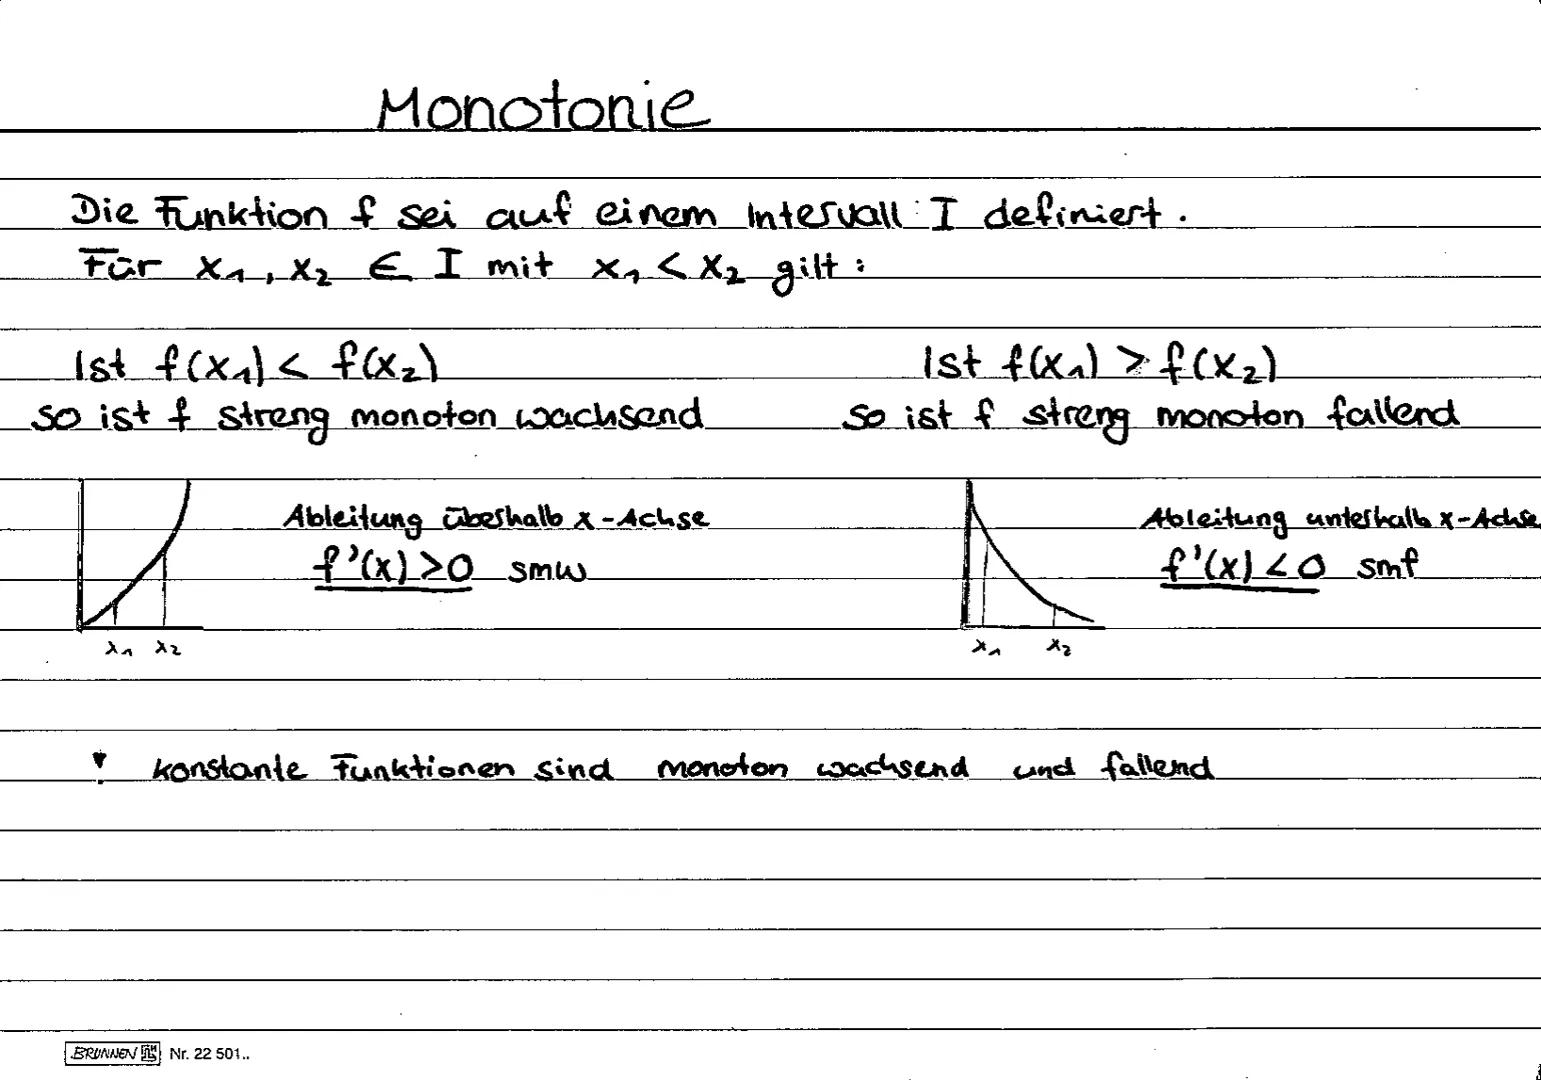 Monotonie
Die Funktion f sei auf einem Intervall I definiert.
Für x₁, x₂ ∈ I mit x₁ < x₂ gilt:
Ist f(x₁) < f(x₂)
so ist f streng monoton wachsend
Ist f(x₁) > f(x₂)
so ist f streng monoton fallend
Ableitung überhalb x-Achse
f'(x) > 0 smw
x₁ x₂
Ableitung unterhalb x-Achse
f'(x) < 0 smf
x₁ x₂
! konstante Funktionen sind monoton wachsend und fallend
BRUNNEN Nr. 22 501..